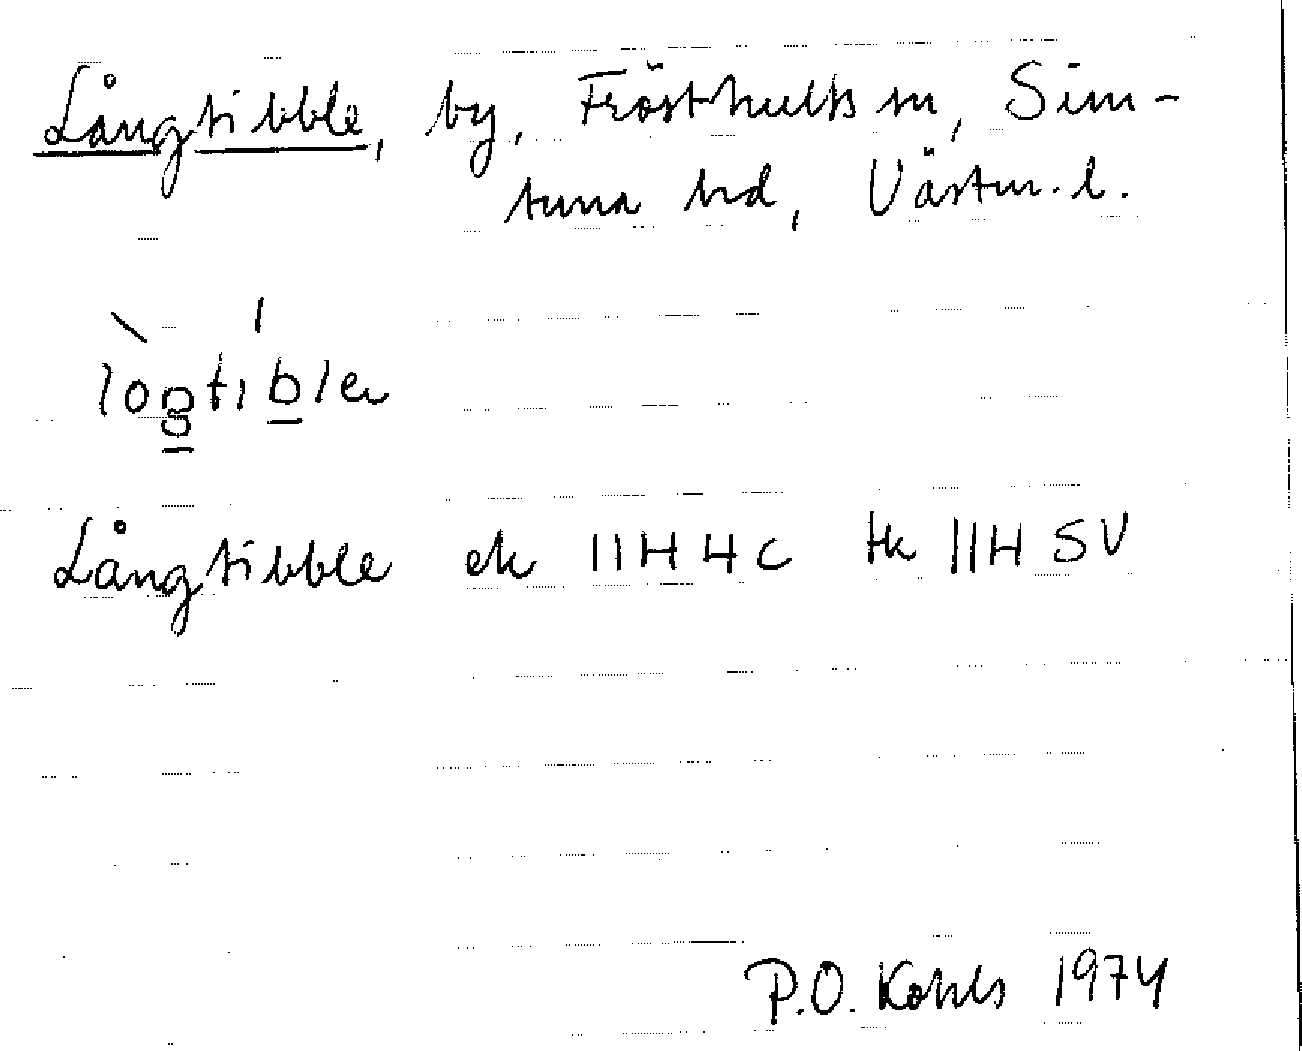 Långtibble, by, Frösthults sn, Sim-
tuna hd, Västm. l.
Långtibble ek 11H 4c tk 11H SV
P.O. Kohls 1974